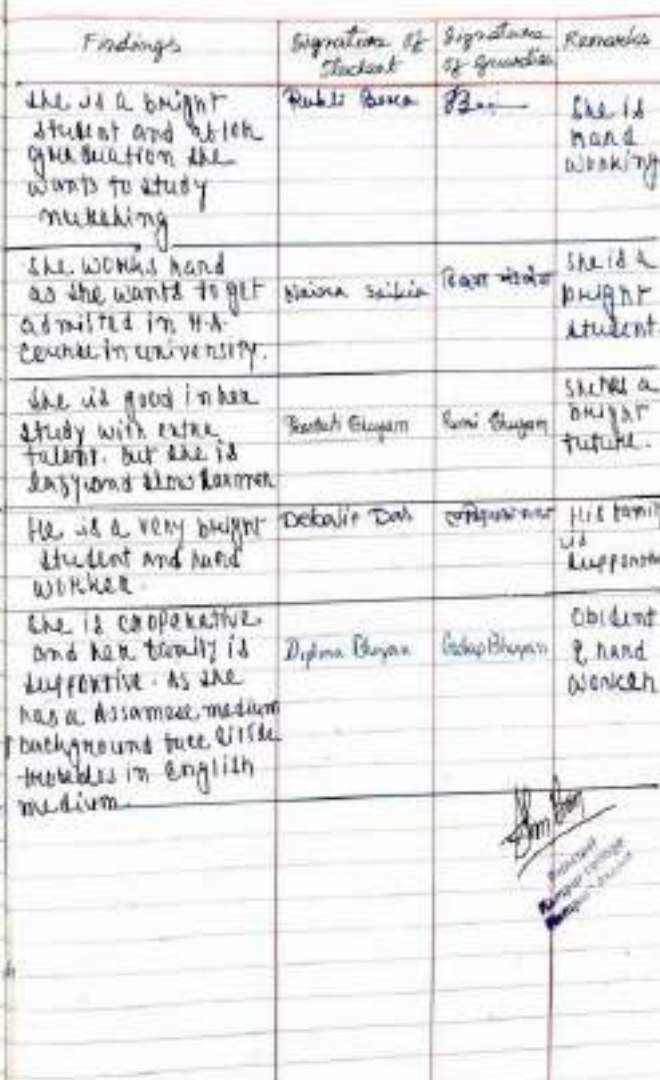 Findings
Signature of
Student
Signature
of Guardian
Remarks
She is a bright
student and after
graduation she
wants to study
nurshing
She is
hard
working
She works hard
as she wants to get
admitted in M.A.
course in university.
Naina Saikia
She is a
bright
student.
She is good in her
study with extra
talent. but she is
lazy and slow learner
Bhuyan
Rumi Bhuyan
She has a
bright
future.
He is a very bright
student and hard
worker.
Debajit Das
His family
is
supportive
She is cooperative
and her family is
supportive. As she
has a Assamese medium
background face little
troubles in English
medium.
Diploma Bhuyan
Bhuyan
Obident
& hard
worker